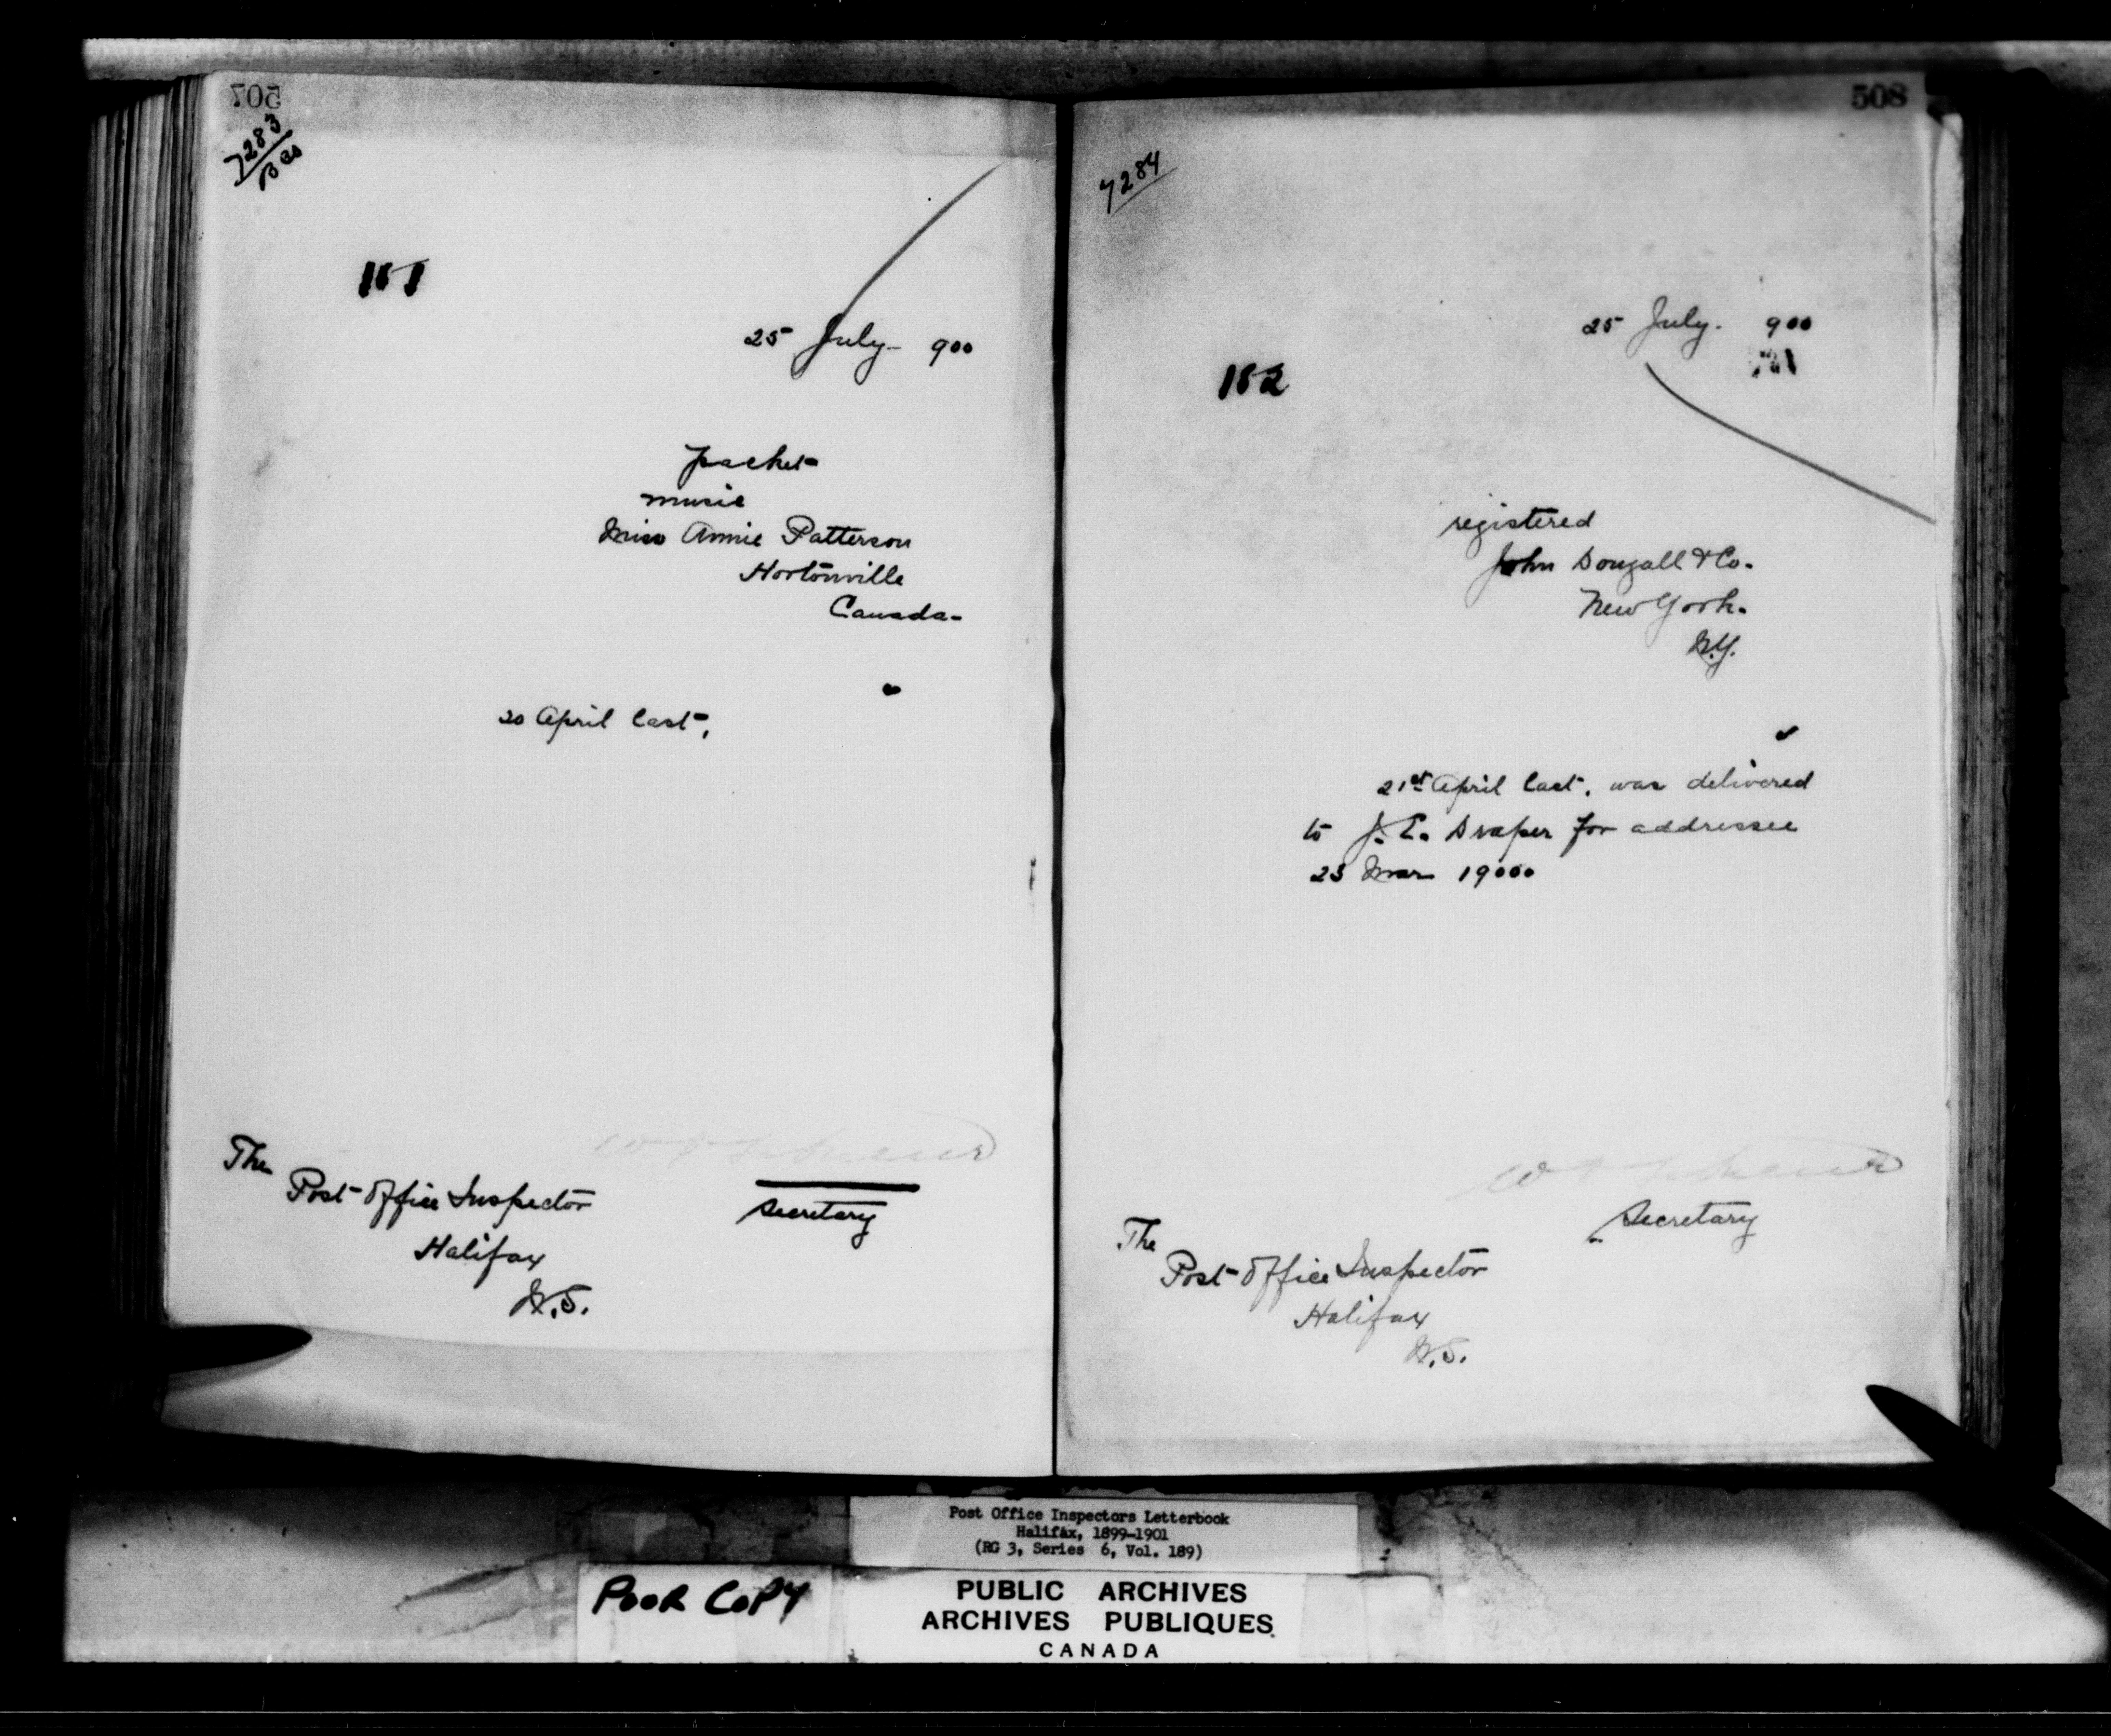 507
7283
25 July 900
packet
music
Miss Annie Patterson
Hortonville
Canada-
20 April last,
The
Post Office Inspector
Secretary
Halifax
N.S.
508
7284
25 July. 900
182
registered
John Dougall & Co.
New York.
N.Y.
21st April last, was delivered
to J. E. Draper for addressee
23 Mar 19000
Secretary
The
Post Office Inspector
Halifax
N.S.
Post Office Inspectors Letterbook
Halifax, 1899-1901
(RG 3, Series 6, Vol. 189)
POOR COPY
PUBLIC ARCHIVES
ARCHIVES PUBLIQUES
CANADA